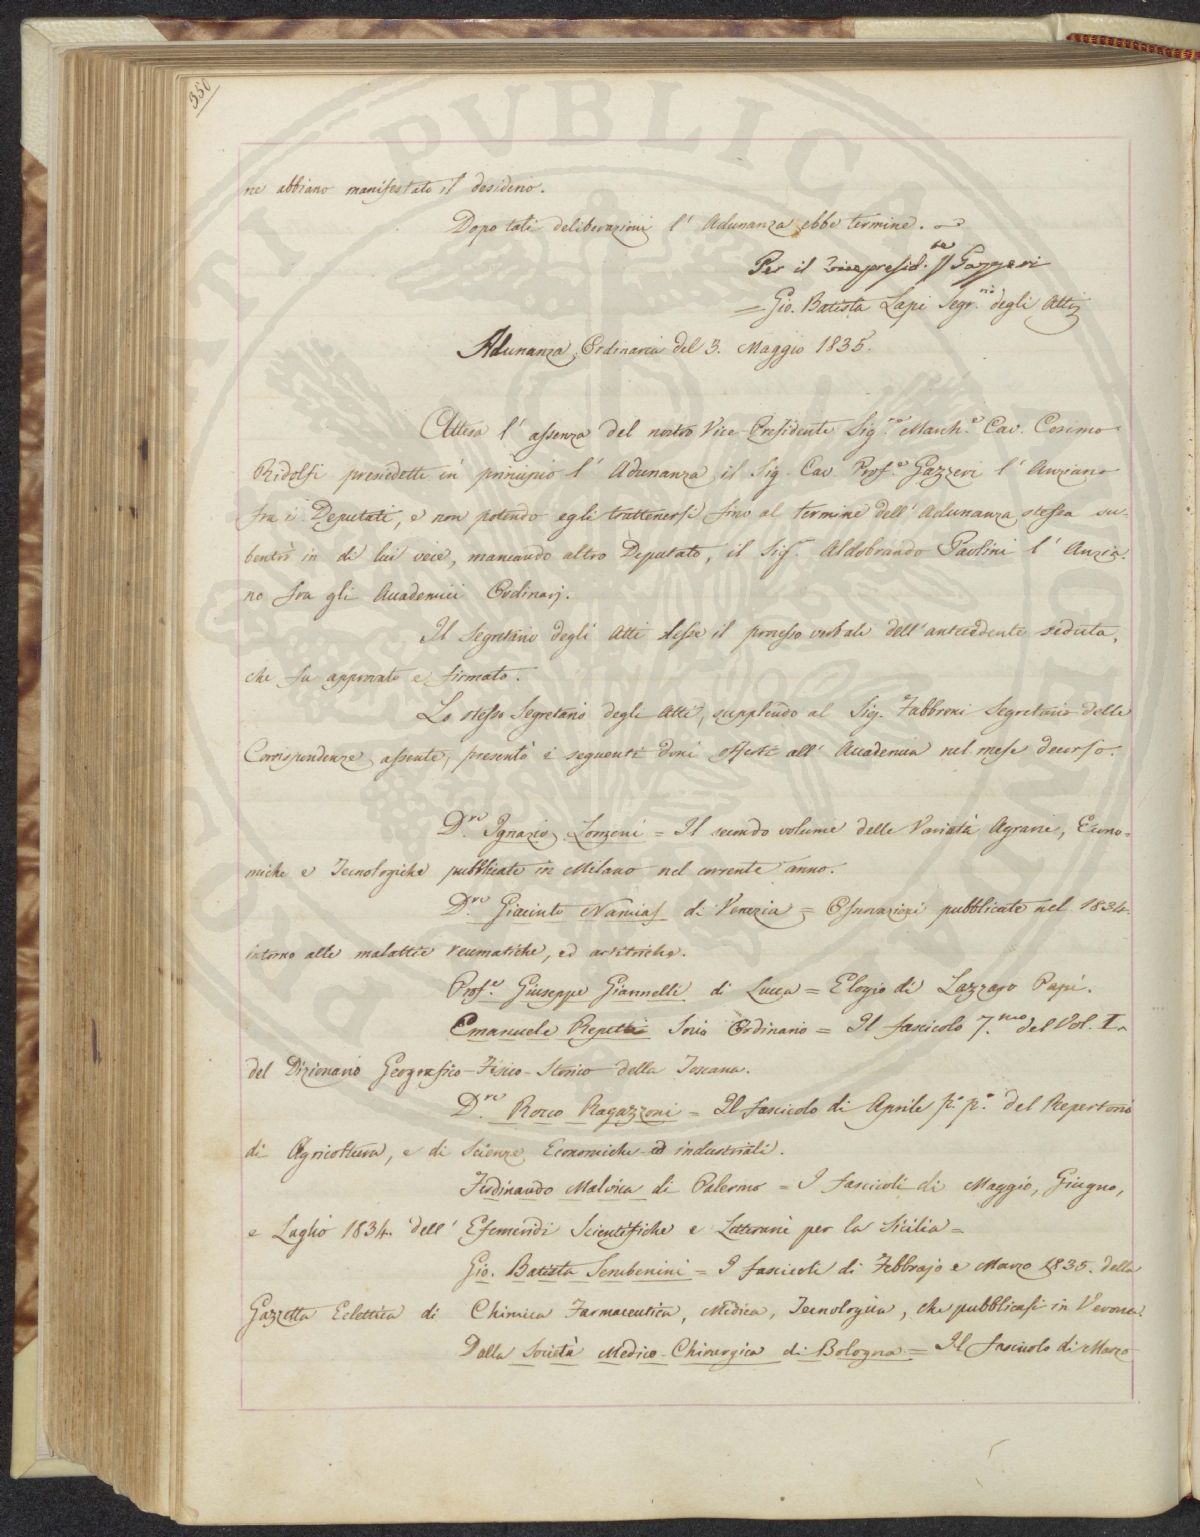 350
ne abbiano manifestato il desiderio.
Dopo tali deliberazioni l' Adunanza ebbe termine.
Per il vicepresid.te Gazzeri
= Gio. Batista Lapi Segr.rio degli Atti
Adunanza Ordinaria del 3. Maggio 1835.
Attesa l' assenza del nostro Vice-Presidente Sig.re March.e Cav. Cosimo
Ridolfi presiedette in principio l' Adunanza il Sig. Cav. Prof.e Gazzeri l' Anziano
fra i Deputati, e non potendo egli trattenersi fino al termine dell' Adunanza stessa su-
bentrò in di lui vece, mancando altro Deputato, il Sig. Aldobrando Paolini l' Anzia-
no fra gli Accademici Ordinarj.
Il Segretario degli Atti lesse il processo verbale dell' antecedente seduta,
che fu approvato e firmato.
Lo stesso Segretario degli Atti, supplendo al Sig. Fabbroni Segretario delle
Corrispondenze assente, presentò i seguenti doni offerti all' Accademia nel mese decorso.
D.re Ignazio Lomeni = Il secondo volume delle Varietà Agrarie, Econo-
miche e Tecnologiche pubblicate in Milano nel corrente anno.
D.re Giacinto Namias di Venezia = Osservazioni pubblicate nel 1834.
intorno alle malattie reumatiche, ed artritiche.
Prof.e Giuseppe Giannelli di Lucca = Elogio di Lazzaro Papi.
Emanuele Repetti Socio Ordinario = Il fascicolo 7.mo del Vol. I.
del Dizionario Geografico-Fisico-Storico della Toscana.
D.re Rocco Ragazzoni = Il fascicolo di Aprile p.o p.o del Repertorio
di Agricoltura, e di Scienze Economiche ed industriali.
Ferdinando Malvica di Palermo = I fascicoli di Maggio, Giugno,
e Luglio 1834. dell' Efemeridi Scientifiche e Letterarie per la Sicilia =
Gio. Batista Sembenini = I fascicoli di Febbrajo e Marzo 1835. della
Gazzetta Eclettica di Chimica Farmaceutica, Medica, Tecnologica, che pubblicasi in Verona.
Dalla Società Medico-Chirurgica di Bologna = Il fascicolo di Marzo